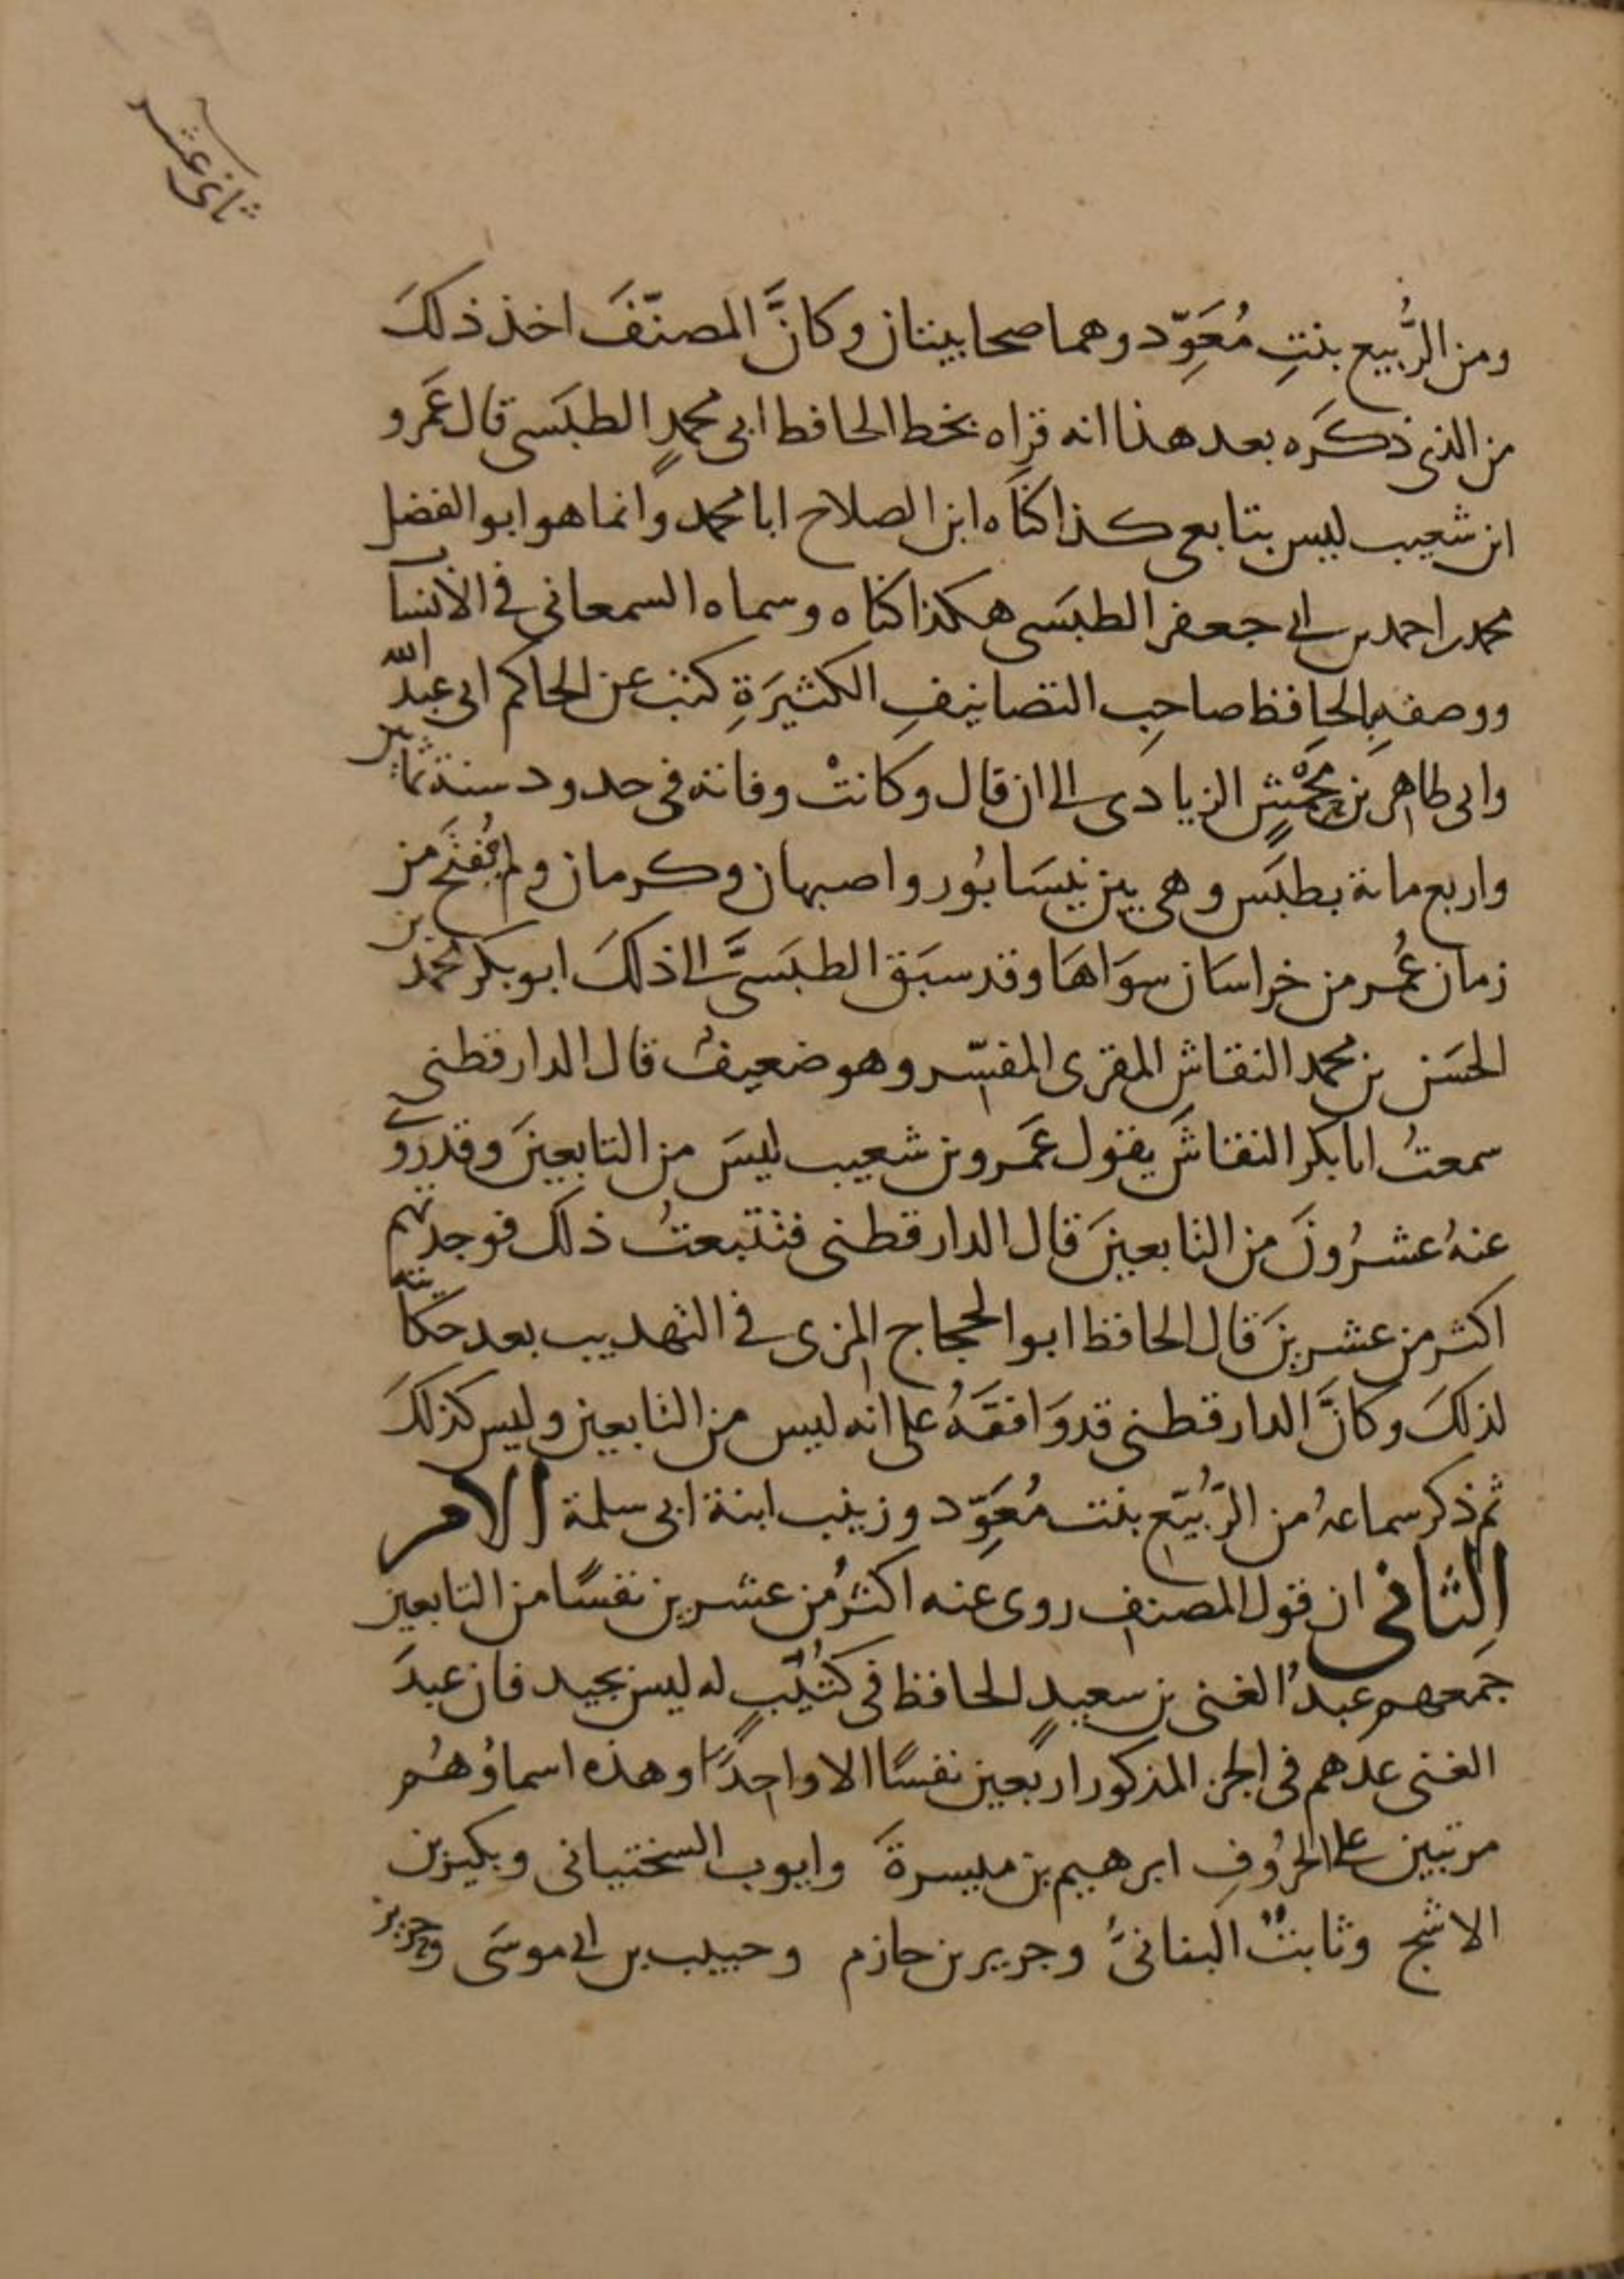 ثاني عشر
ومن الرُّبيع بنتِ مُعَوِّد وهما صحابيتان وكانَّ المصنّفَ اخذ ذلكَ
من الذي ذكَره بعد هذا انه قراه بخط الحافظ ابي محمدٍ الطبَسي قال عَمرو
ابن شعيب ليس بتابعي كذا كنَّاه ابن الصلاح ابا محمد وانما هو ابو الفضل
محمد بن احمد بن ابي جعفر الطبَسي هكذا كناه وسماه السمعاني في الأنساب
ووصفه بالحافظ صاحِب التصانيفِ الكثيرَةِ كتب عن الحاكم ابي عبد الله
وابي طاهر بن مَحْمِشٍ الزيادي الى ان قال وكانتْ وفاته في حدود سنة ثمانين
واربع مائة بطبَس وهي بين نيسَابُور واصبهان وكرمان ولم يُفتَح من
زمان عُمر من خراسَان سوَاهَا وقد سبَق الطبَسيَّ الى ذلكَ ابو بكر محمد بن
الحسَن بن محمد النقاش المقرى المفسّر وهو ضعيفٌ قال الدارقطني
سمعتُ ابا بكر النقاشَ يقول عَمرو بن شعيب ليسَ من التابعينَ وقد روى
عنهُ عشرُونَ من التابعينَ قال الدارقطني فتتبعتُ ذلك فوجدتهم
اكثر من عشرينَ قال الحافظ ابو الحجاج المزي في التهذيب بعد حكايته
لذلكَ وكانَّ الدارقطني قد وَافقَهُ على انه ليس من التابعين وليس كذلكَ
ثم ذكر سماعهُ من الرُّبيّع بنت مُعَوِّد وزينب ابنة ابي سلمة الامر
الثاني ان قول المصنف روى عنه اكثرُ من عشرين نفسًا من التابعين
جمعهم عبدُ الغني بن سعيدٍ الحافظ في كتُيّبٍ له ليس بجيد فان عبدَ
الغني عدهم في الجزء المذكور اربعين نفسًا الا واحِدًا وهذه اسماؤهُم
مرتبين على الحرُوفِ ابرهيم بن ميسرةَ وايوب السختياني وبكير بن
الاشج وثابتٌ البنانيُّ وجرير بن حازم وحبيب بن ابي موسَى وحريز بن